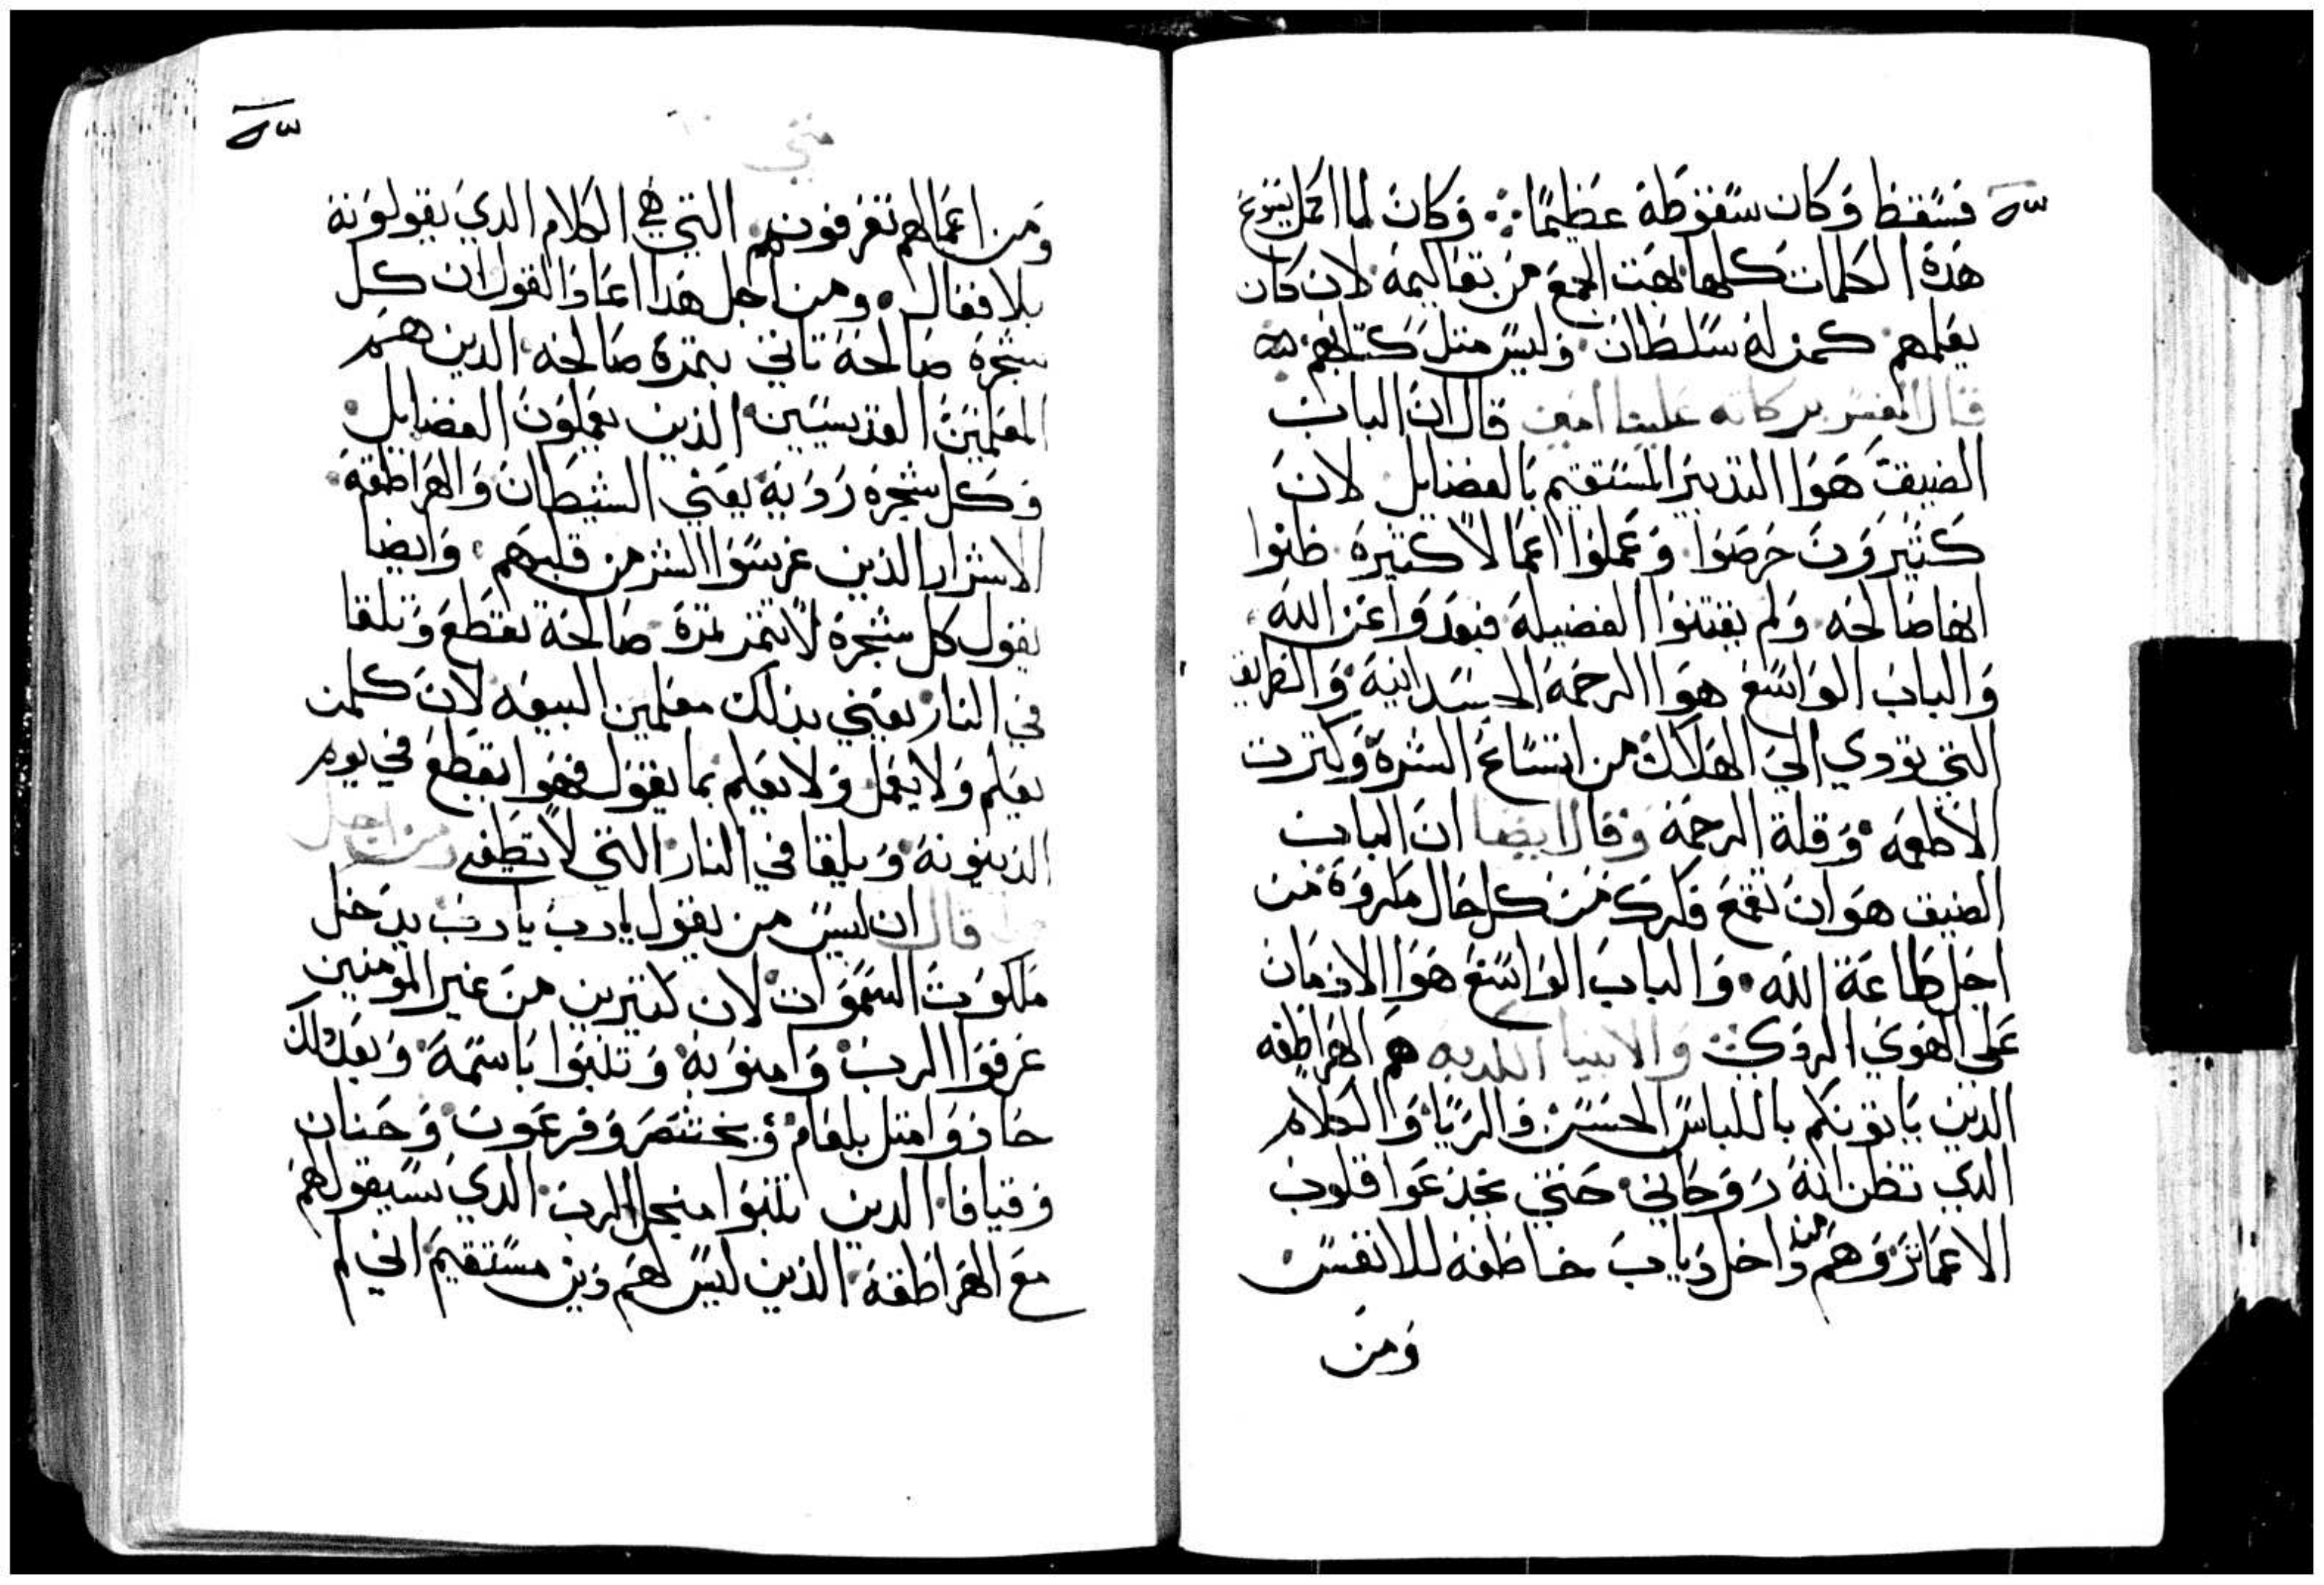 فسقط وكان سقوطه عظيمًا وكان لما اكمل يسوع
هذه الكلمات كلها بهت الجمع من تعاليمه لان كان
يعلمهم كمن له سلطان وليس مثل كتابهم
قال المفسر بركاته علينا امين قال ان الباب
الضيقت هوا التدبير المستقيم بالفضايل لان
كثيرون حرصوا وعملوا اعمالاً كثيرة ظنوا
انها صالحه ولم يقتنوا الفضيلة فبعدوا عن الله
والباب الواسع هوا الرحمة الجسدانية والطريق
التي تودي الي الهلاك من اتساع الشرة وكترت
الاطعمه وقلة الرحمة وقال ايضا ان الباب
الضيق هو ان تقمع فكرك من كل حال مكروة من
اجل طاعة الله والباب الواسع هوا الادمان
على الهوي الردي والانبيا الكدبه هم الهراطقه
الدين ياتونكم باللباس الحسن والريا والكلام
الدي تظن انه روحاني حتي يخدعوا قلوب
الاعمائر وهم من داخل دياب خاطفه للانفس
ومن
متي
ومن اعمالهم تعرفونهم التي هي الكلام الدي يقولونه
بلا فعال ومن اجل هدا اعاد القول ان كل
شجرة صالحة تاتي بتمرة صالحه الدين هم
المعلمين القديسيين الذين يعملون الفضايل
وكل شجره رديه يعني الشيطان والهراطقة
الاشرار الذين غرسوا الشر من قلبهم وايضا
يقول كل شجرة لا تتمر تمرة صالحة تقطع وتلقا
في النار يعني بذلك معلمين البيعه لان كلمن
يعلم ولا يعمل ولا يعلم بما يقول فهوا يقطع في يوم
الدينونة ويلقا في النار التي لا تطفي ومن اجل
قال ان ليس من يقول يارب يارب يدخل
ملكوت السموات لان كتيرين من غير المومنين
عرفوا الرب وامنو به وتنبوا باسمة وبعد ذلك
حادوا متل بلعام وبختنصر وفرعون وحنان
وقيافا الدين تنبوا من اجل الرب الدي سيقول لهم
مع الهراطقة الذين ليس لهم دين مستقيم اني لم